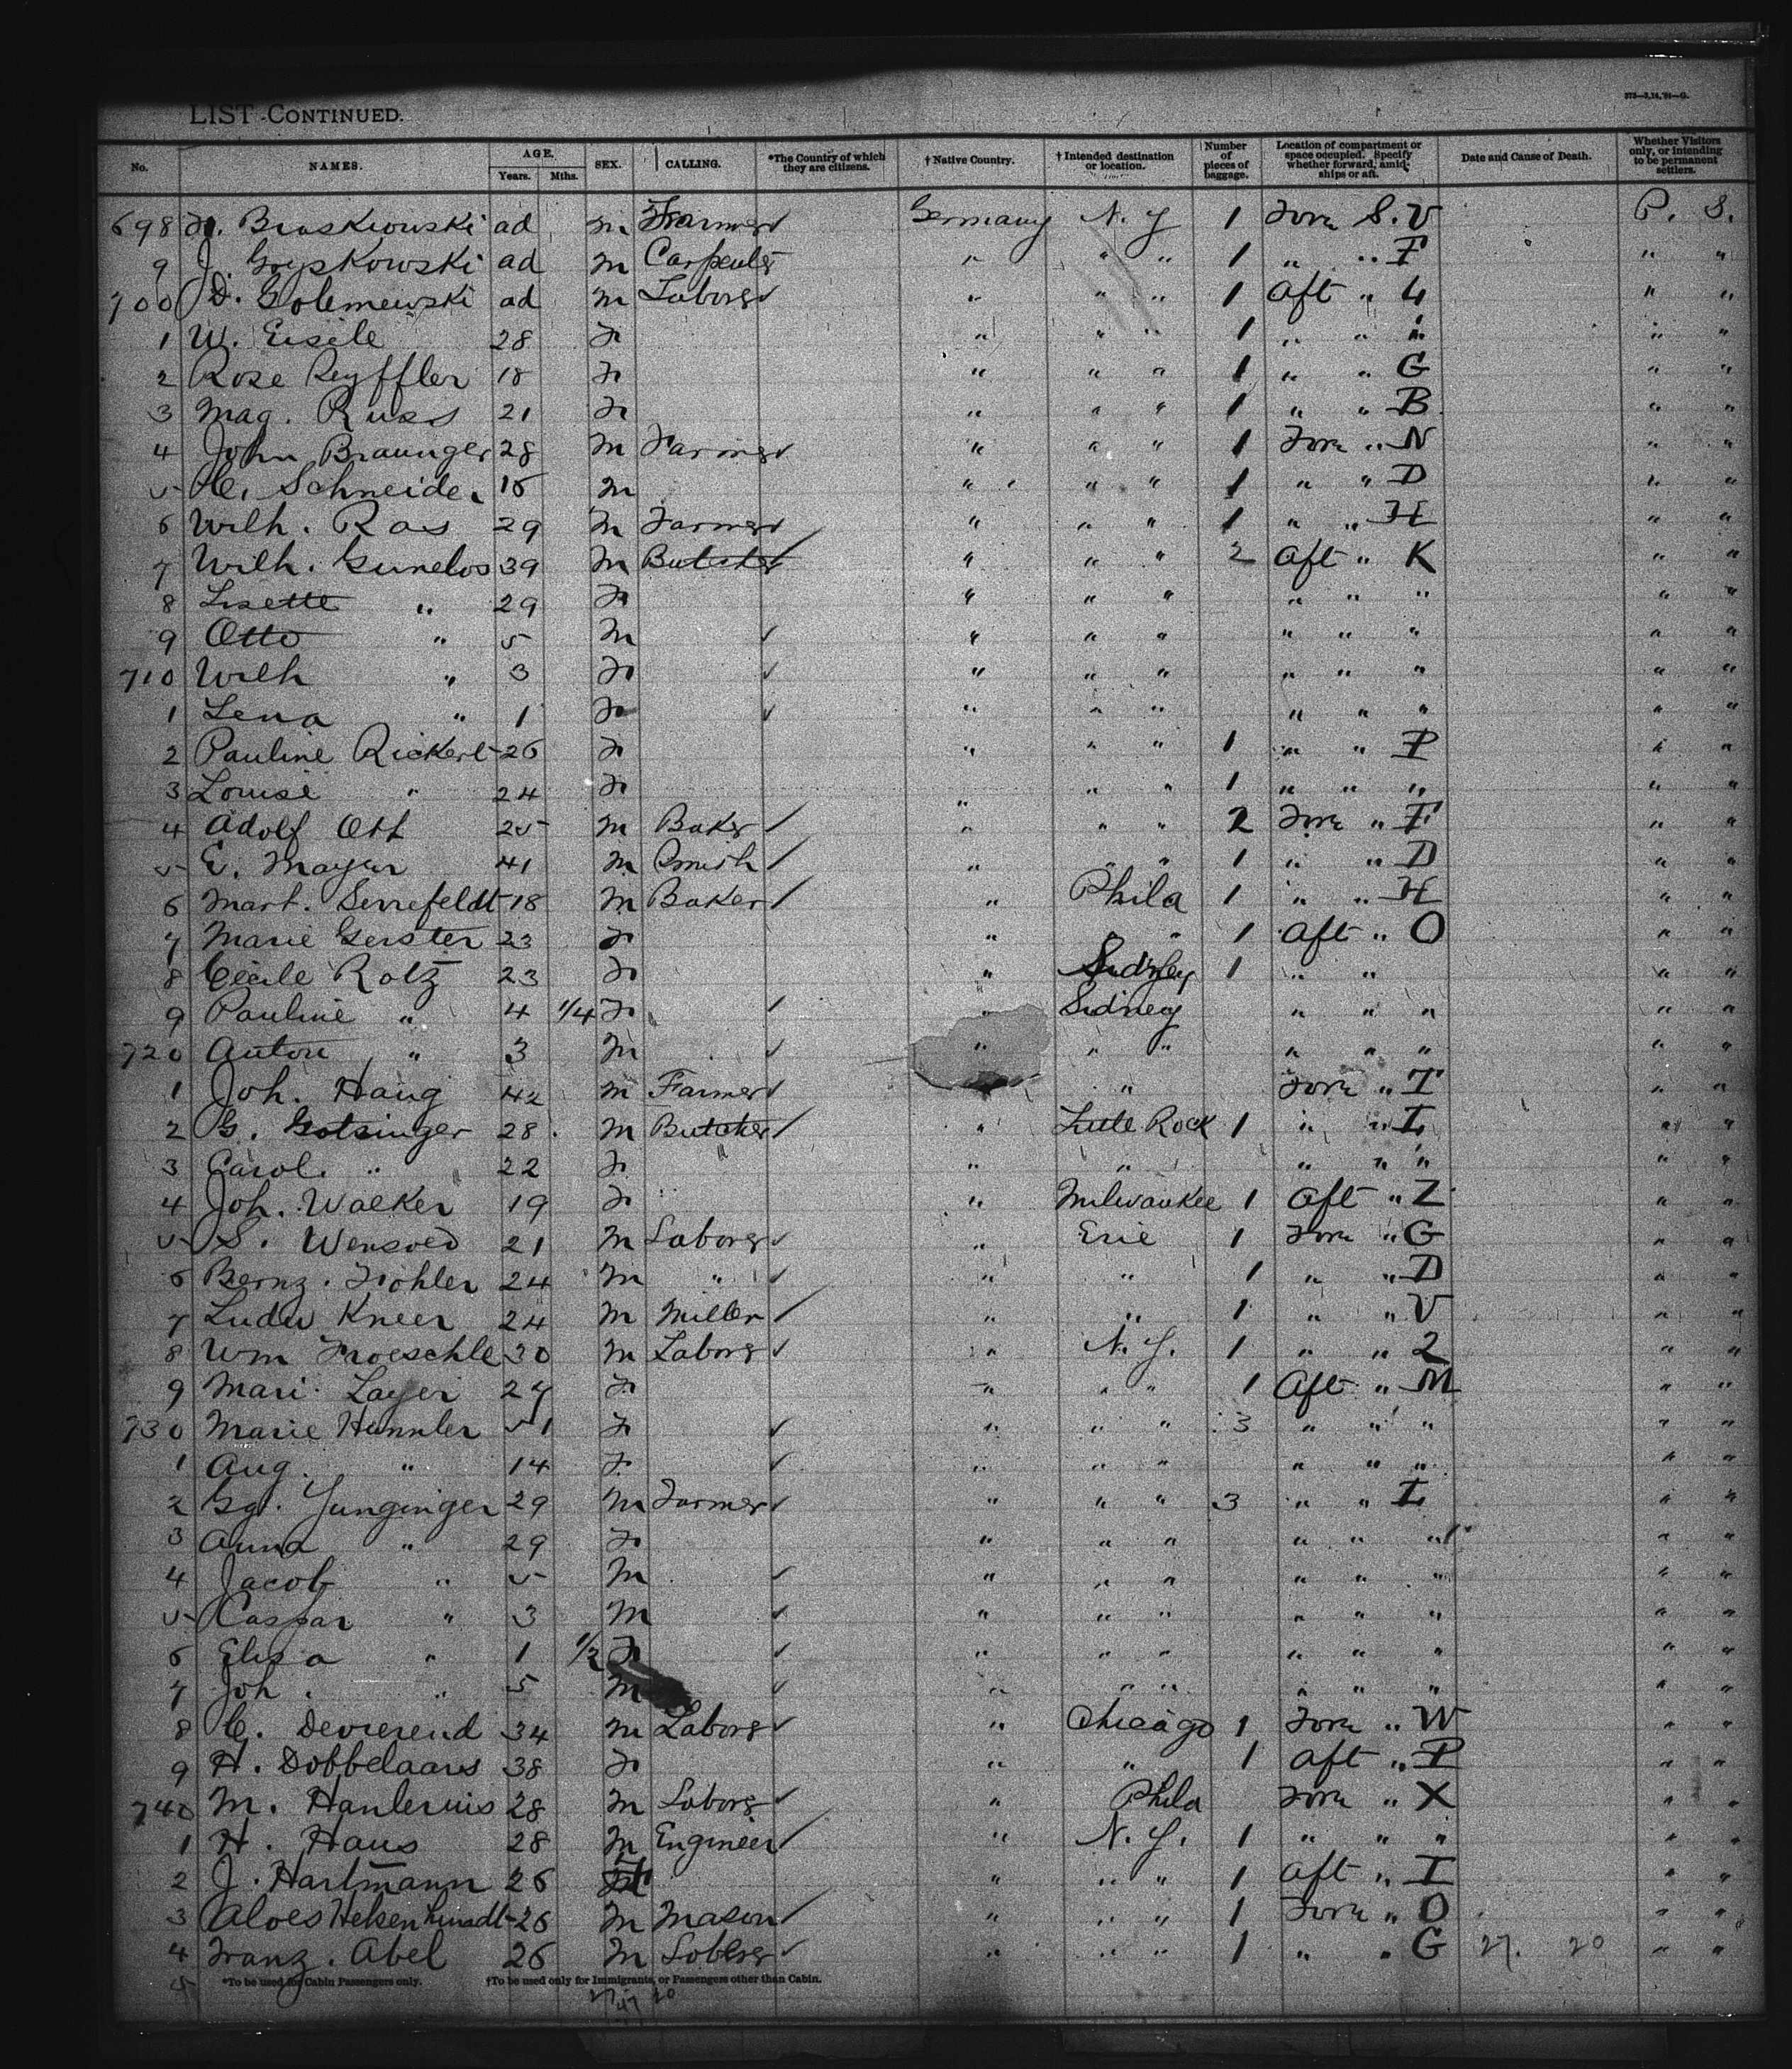 LIST-CONTINUED.
375—3,14,'91—G.
No. NAMES. AGE. Years. Mths. SEX. CALLING. *The Country of which they are citizens. † Native Country. † Intended destination or location. Number of pieces of baggage. Location of compartment or space occupied. Specify whether forward, amidships or aft. Date and Cause of Death. Whether Visitors only, or intending to be permanent settlers.
698 Braskowski ad m Farmer ✓ Germany N. Y 1 Forw S. V P. S.
9 J. Gryskowski ad m Carpenter " " " 1 " " F " "
700 D. Golemewski ad m Laborer ✓ " " " 1 aft " 4 " "
1 W. Eisile 28 F " " " 1 " " " " "
2 Rose Reyffler 18 F " " " 1 " " G " "
3 Mag. Russ 21 F " " " 1 " " B " "
4 John Braunger 28 m Farmer ✓ " " " 1 Forw " N " "
5 C. Schneider 18 m " " " 1 " " D " "
6 Wilh. Ras 29 m Farmer ✓ " " " 1 " " H " "
7 Wilh. Gunelos 39 m Butcher ✓ " " " 2 aft " K " "
8 Lisette " 29 F " " " " " " " "
9 Otto " 5 m ✓ " " " " " " " "
710 Wilh " 3 F ✓ " " " " " " " "
1 Lena " 1 F ✓ " " " " " " " "
2 Pauline Rickert 26 F " " " 1 " " P " "
3 Louise " 24 F " " " 1 " " " " "
4 Adolf Ott 25 m Baker ✓ " " " 2 Forw " F " "
5 E. Mayer 41 m Smith ✓ " " " 1 " " D " "
6 Mart. Serrefeldt 18 m Baker ✓ " Phila 1 " " H " "
7 Marie Gerster 23 F " " 1 aft " O " "
8 Cecile Rotz 23 F " Sidney 1 " " " "
9 Pauline " 4 1/4 F ✓ " Sidney " " " " "
720 Anton " 3 m ✓ " " " " " " " "
1 Joh. Haug 42 m Farmer ✓ " Forw " T " "
2 G. Gotsinger 28 m Butcher ✓ " Little Rock 1 " " L " "
3 Carol. " 22 F " " " " " " "
4 Joh. Walker 19 F " Milwaukee 1 aft " Z " "
5 S. Wensoed 21 m Laborer ✓ " Erie 1 Forw " G " "
6 Bernz. Fiohler 24 m " ✓ " " 1 " " D " "
7 Ludw Kneer 24 m Miller ✓ " " 1 " " V " "
8 Wm Froeschle 30 m Laborer ✓ " N. Y. 1 " " 2 " "
9 Mari. Layer 27 F " " " 1 aft " M " "
730 Marie Hunnler 51 F ✓ " " " 3 " " " " "
1 Aug. " 14 F ✓ " " " " " " " "
2 Gg. Junginger 29 m Farmer ✓ " " " 3 " " L " "
3 Anna " 29 F " " " " " " " "
4 Jacob " 5 m ✓ " " " " " " " "
5 Caspar " 3 m ✓ " " " " " " " "
6 Elisa " 1 1/2 F ✓ " " " " " " " "
7 Joh. " 5 m ✓ " " " " " " " "
8 C. Devierend 34 m Laborer ✓ " Chicago 1 Forw " W " "
9 H. Dobbelaars 38 F " " 1 aft " P " "
740 M. Hanleruis 28 m Laborer ✓ " Phila Forw " X " "
1 H. Haus 28 m Engineer ✓ " N. Y. 1 " " " " "
2 J. Hartmann 26 " " " 1 aft " I " "
3 Aloes 26 m Mason ✓ " " " 1 Forw " O " "
4 Franz. Abel 26 m Laborer ✓ " " " 1 " " G 27. 20 " "
5 *To be used for Cabin Passengers only. †To be used only for Immigrants, or Passengers other than Cabin.
27 47 20